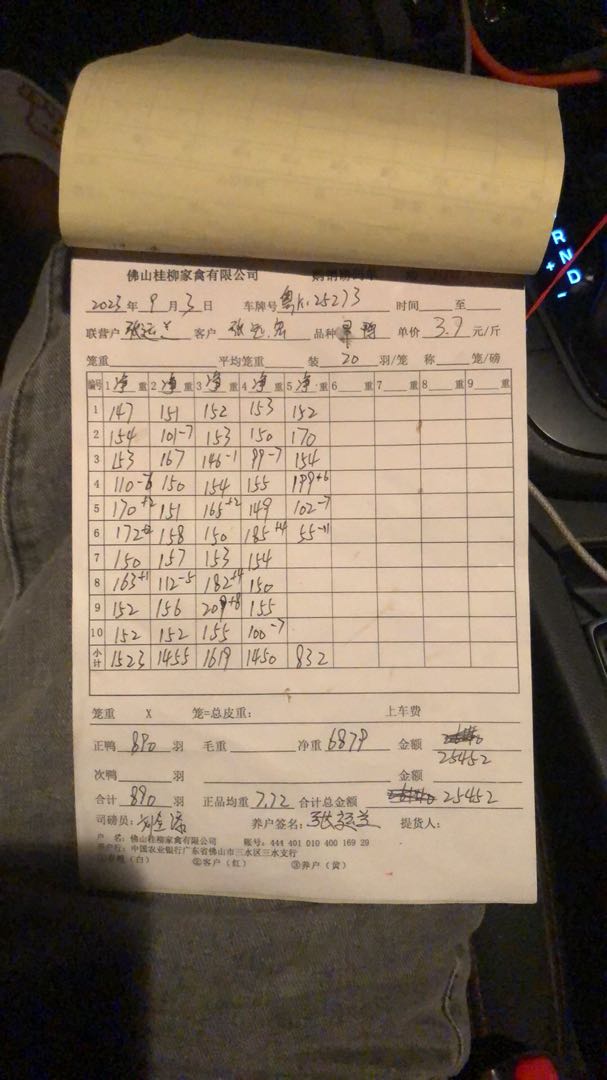 佛山桂柳家禽有限公司
2023年9月3日 车牌号粤K·25273 时间 至
联营户 客户 品种 单价3.7元/斤
笼重 平均笼重 装20羽/笼 称 笼/磅
编号 1净重 2净重 3净重 4净重 5净重 6 重 7 重 8 重 9 重
1 147 151 152 153 152
2 154 101-7 153 150 170
3 153 167 146-1 99-7 154
4 110-6 150 154 155 199+6
5 170+2 151 165+2 149 102-7
6 172+2 158 150 185+4 55-11
7 150 157 153 154
8 163+1 112-5 182+4 150
9 152 156 209+8 155
10 152 152 155 100-7
小计 1523 1455 1619 1450 832
笼重 X 笼=总皮重： 上车费
正鸭890羽 毛重 净重6879 金额
25452
次鸭 羽 金额
合计890羽 正品均重7.72 合计总金额 25452
司磅员： 养户签名： 提货人：
户 名：佛山桂柳家禽有限公司 账号：444 401 010 400 169 29
开户行：中国农业银行广东省佛山市三水区三水支行
（白） ②客户（红） ③养户（黄）